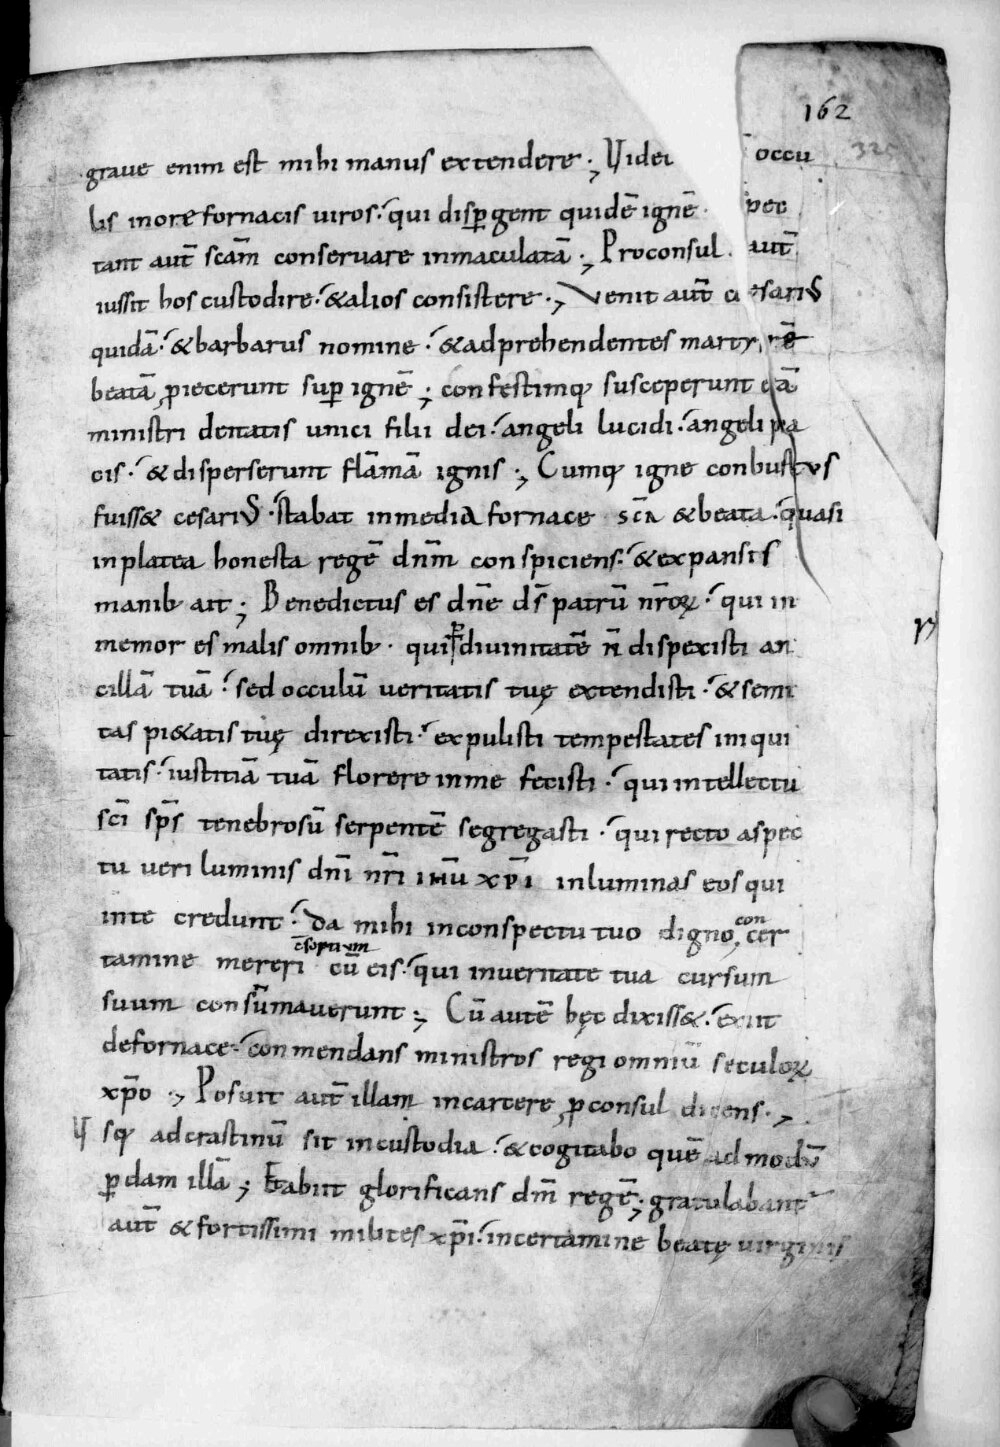 162
325
graue enim est mihi manus extendere ·, Uidei occu
lis inore fornacis uiros · qui disꝑgent quidē ignē · pec
tant aut̄ scām conseruare inmaculatā ·, Proconsul · aut̄
iussit hos custodire · &alios consistere ·, Venit aut̄ cesariuſ
quidā · &barbarus nomine · &adprehendentes martyrē
beatā ꝓiecerunt suꝑ ignē ; confestimq; susceperunt eā
ministri deitatis unici filii dei · angeli lucidi · angeli pa
cis · & disperserunt flāmā ignis ·, Cumq; igne conbustus
fuiss& cesariuſ · stabat inmedia fornace sc̄a &beata · quasi
inplatea honesta regē dn̄m conspiciens · &expansis
manib; ait ; Benedictus es dn̄e ds̄ patrū nr̄oꝝ · qui in
memor es malis omnib; · qui ꝑ diuinitatē n̄ dispexisti an
cillā tuā · sed occulū ueritatis tuę extendisti · & semi
tas pi&atis tuę direxisti · expulisti tempestates iniqui
tatis · iustitiā tuā florere inme fecisti · qui intellectu
sc̄i sp̄s tenebrosū serpentē segregasti · qui recto aspec
tu ueri luminis dn̄i nr̄i ihū xp̄i inluminas eos qui
inte credunt · da mihi inconspectu tuo digno con cer
tamine mereri c̄sortium cū eis · qui inueritate tua cursum
suum consūmauerunt ·, Cū autē hęc dixiss& · exiit
defornace · conmendans ministros regi omniū seculoꝝ
xp̄o ·, Posuit aut̄ illam incarcere ꝓconsul dicens ·,
U sq; adcrastinū sit incustodia · &cogitabo quē admodū
ꝑdam illā ; Etabiit glorificans dm̄ regē ; gratulabant̄
aut̄ &fortissimi milites xp̄i · incertamine beatę uirginis